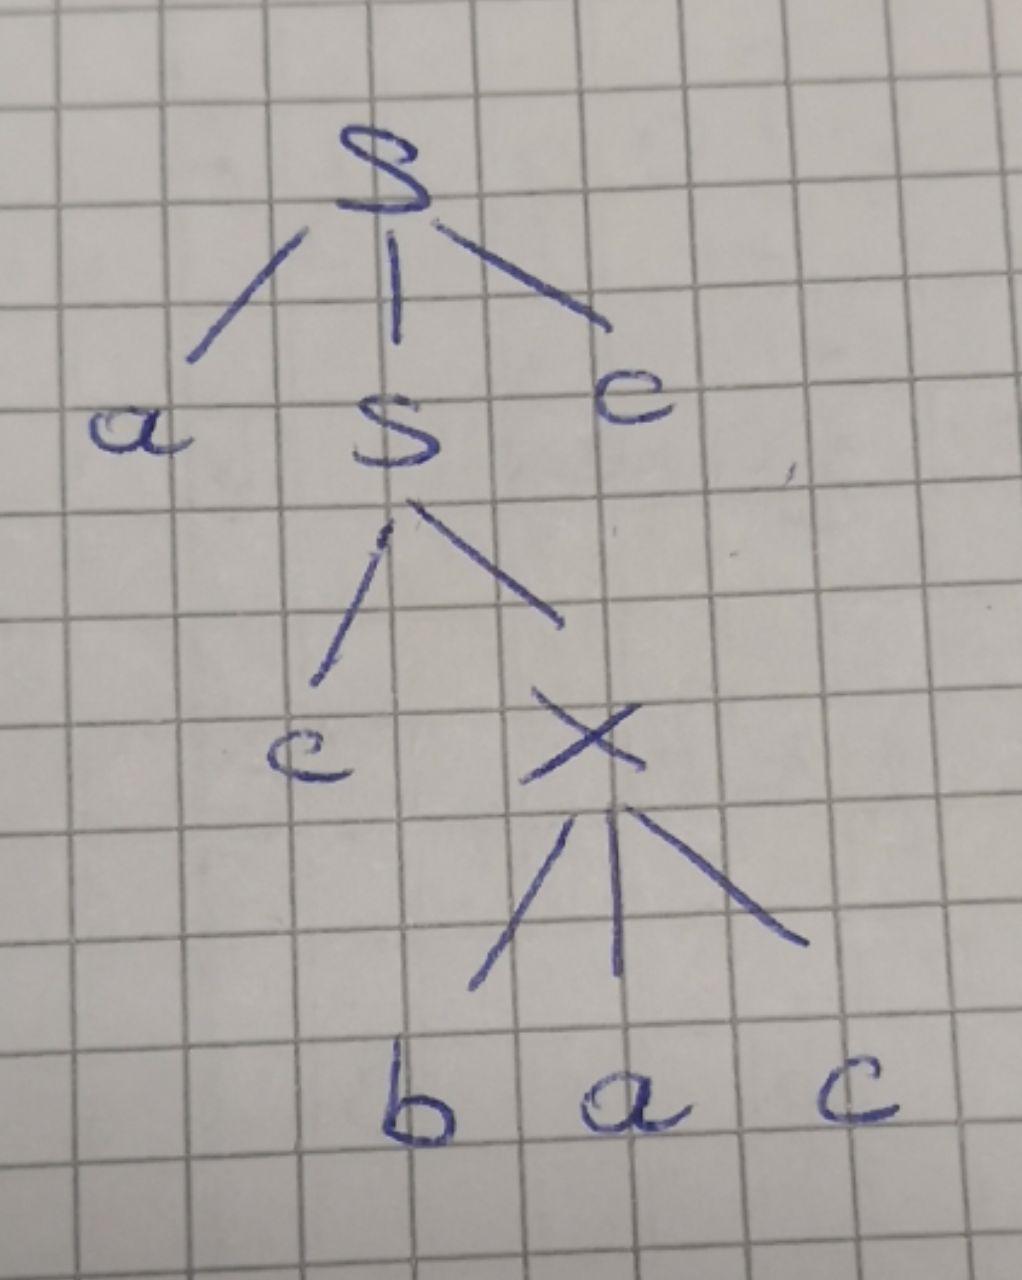 S
a S c
c X
b a c